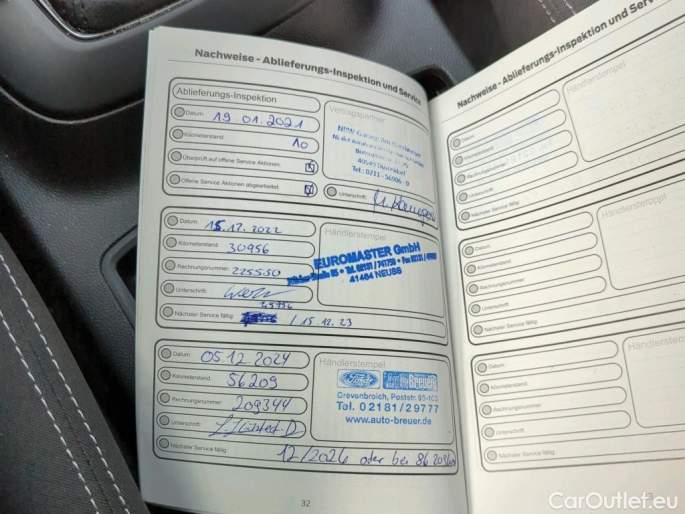 Nachweise - Ablieferungs-Inspektion und Service
Ablieferungs-Inspektion
Datum
19 01. 2021
Kilometerstand
10
Überprüft auf offene Service Aktionen
Offene Service Aktionen abgearbeitet
Vertragspartner
NRW Garage
40549 Düsseldorf
Tel.: 0211 -
Unterschrift
Datum
15.12.2022
Kilometerstand
30956
Rechnungsnummer
225550
Unterschrift
Nächster Service fällig
/ 15.12.23
Händlerstempel
EUROMASTER GmbH
41464 NEUSS
Datum
05.12 2024
Kilometerstand
56209
Rechnungsnummer
209344
Unterschrift
Nächster Service fällig
12/2026 oder bei 86 209
Händlerstempel
Ford
Breuer
Grevenbroich, Poststr.
Tel. 02181/29777
www.auto-breuer.de
32
Nachweise - Ablieferungs-Inspektion und Service
Datum
Kilometerstand
Rechnungsnummer
Unterschrift
Nächster Service fällig
Händlerstempel
Datum
Kilometerstand
Rechnungsnummer
Unterschrift
Nächster Service fällig
Händlerstempel
Datum
Kilometerstand
Rechnungsnummer
Unterschrift
Nächster Service fällig
Händlerstempel
CarOutlet.eu